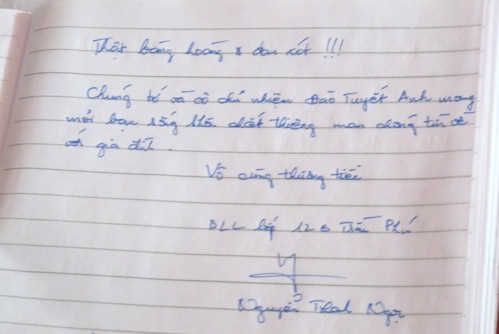 Thật bàng hoàng & đau xót !!!
Chúng tớ và cô chủ nhiệm Đào Tuyết Anh mong
mỏi bạn sống khôn chết thiêng mau chóng tìm về
với gia đình.
Vô cùng thương tiếc
BLL lớp 12 Trần Phú
Nguyễn Thanh Ngọc